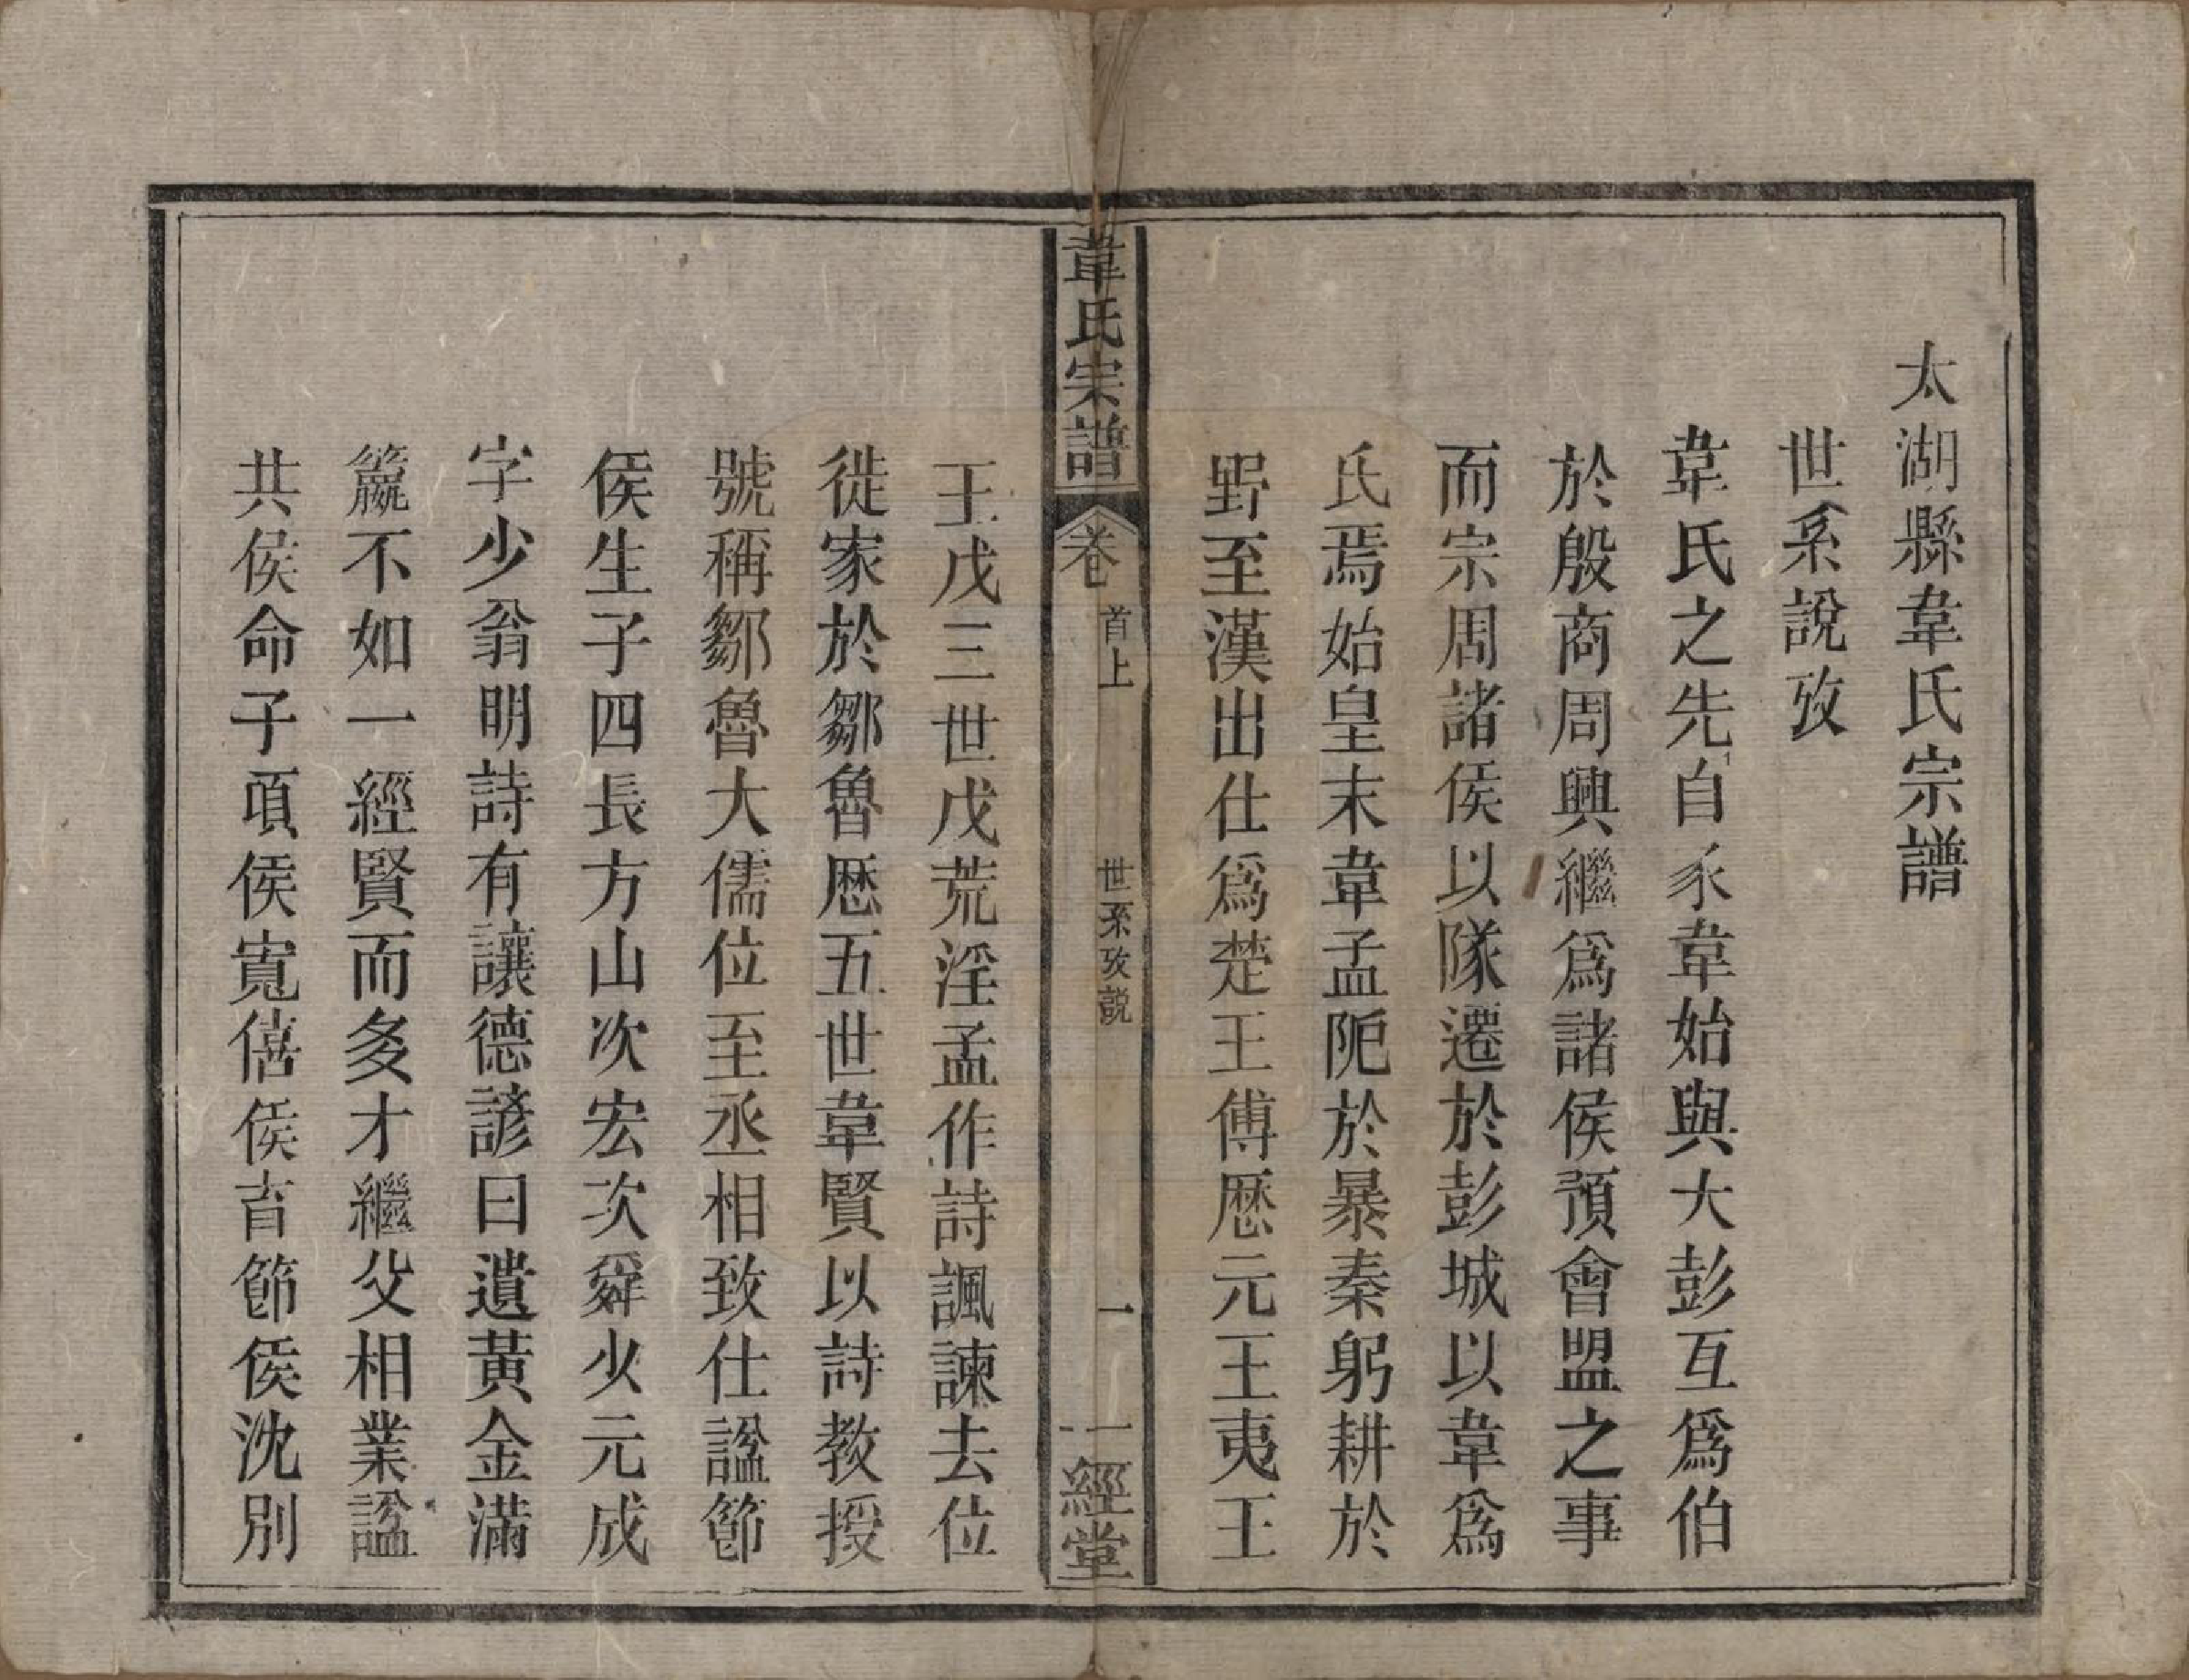 太湖縣韋氏宗譜
世系說攷
韋氏之先自豕韋始與大彭互爲伯
於殷商周興繼爲諸侯預會盟之事
而宗周諸侯以隊遷於彭城以韋爲
氏焉始皇末韋孟阨於暴秦躬耕於
野至漢出仕爲楚王傅厯元王夷王
韋氏宗譜
卷首上
世系攷說
一
一經堂
王戊三世戊荒淫孟作詩諷諫去位
徙家於鄒魯厯五世韋賢以詩教授
號稱鄒魯大儒位至丞相致仕諡節
侯生子四長方山次宏次舜少元成
字少翁明詩有讓德諺曰遺黃金滿
籯不如一經賢而多才繼父相業諡
共侯命子頃侯寬僖侯育節侯沈別